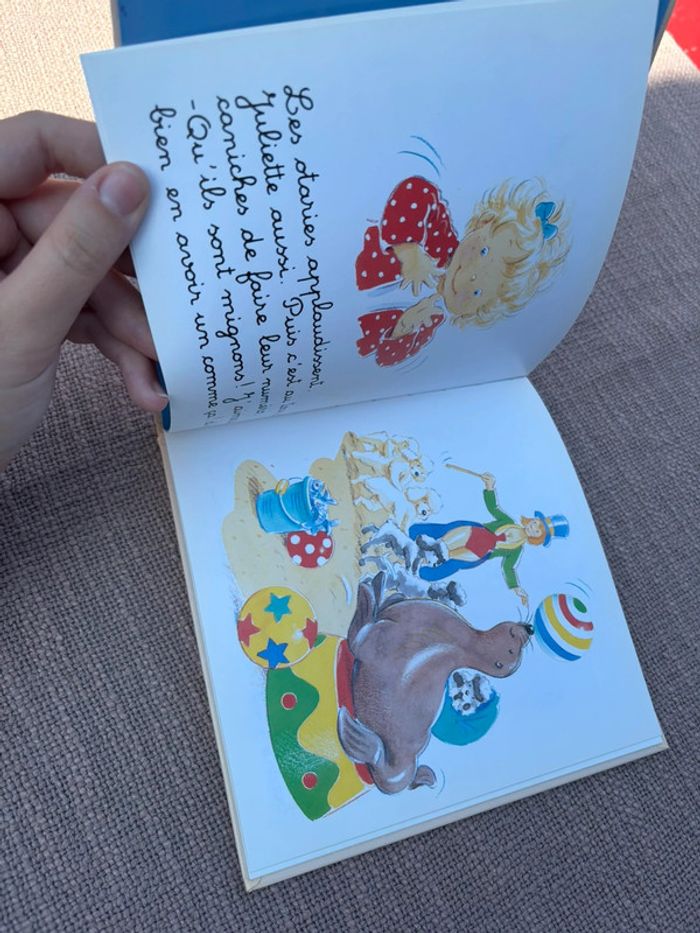 Les otaries applaudissent
Juliette aussi. Puis c'est au
caniches de faire leur numéro
-Qu'ils sont mignons! J'
bien en avoir un comme ça